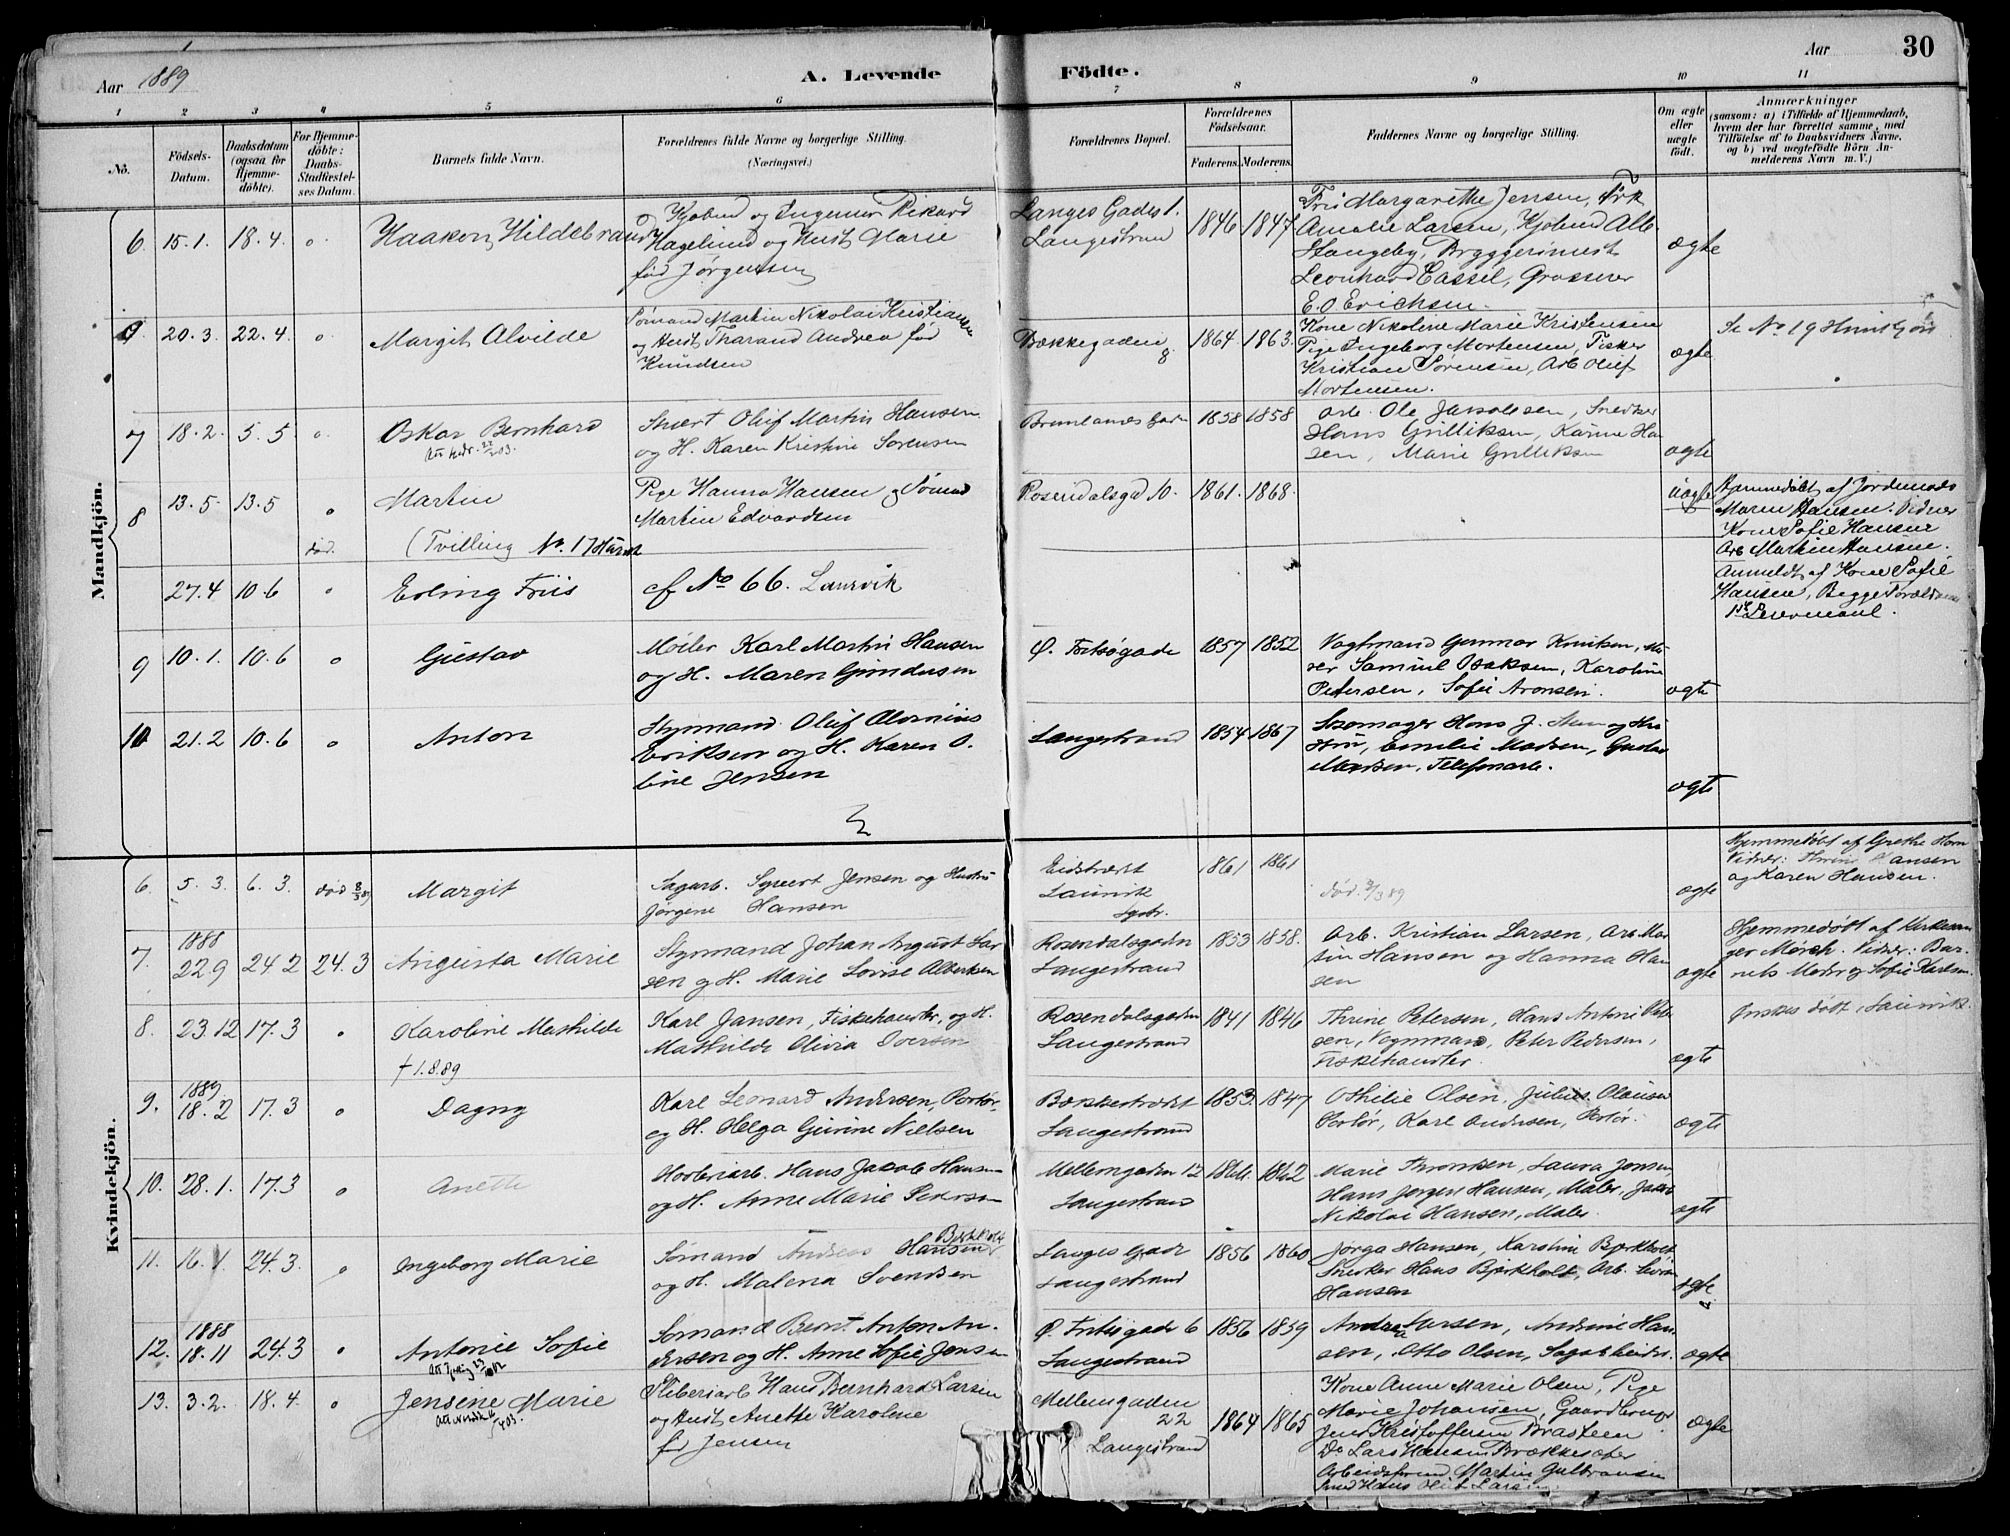 Aar 1889
A. Levende
Födte.
Aar
30
1 2 3 4 5 6 7 8 9 10 11
No.
Födsels-
Datum.
Daabsdatum
(ogsaa for
Hjemme-
döbte).
For Hjemme-
döbte:
Daabs-
Stadfæstel-
ses Datum.
Barnets fulde Navn.
Forældrenes fulde Navne og borgerlige Stilling.
(Næringsvei.)
Forældrenes Bopæl.
Forældrenes
Födselsaar.
Faderens. Moderens.
Faddernes Navne og borgerlige Stilling.
Om ægte
eller
uægte
födt.
Anmærkninger
(saasom: a) i Tilfælde af Hjemmedaab,
hvem der har forrettet samme, med
Tilföielse af to Daabsvidners Navne,
og b) ved uægtefödte Börn An-
melderens Navn m. V.)
Mandkjön.
6 15.1. 18.4. o. Haakon Hildebrand
Kjøbmd og Ingeniør Rikard
Hagelund og Hust. Marie
fød Jørgensen
Langes Gade 1.
Langestrand
1846 1847
Frk Margarethe Jensen, Frk
Amalie Larsen, Kjøbmd Alb.
Stangeby, Bryggerimest.
Leonhard Cassel, Grosserer
E. O Erichsen.
ægte
20.3. 22.4. o. Margit Alvilde
Sømand Martin Nikolai Kristiansen
og Hust. Tharand Andrea fød
Knudsen
Bækkegaden
8.
1864. 1863.
Kone Nikoline Marie Kristensen
Pige Ingeborg Mortensen, Fisker
Kristian Sørensen, Arb Oluf
Mortensen.
ægte
Se No 19 Kvindkjøn
7 18.2. 5.5 o. Oskar Bernhard
Stuert Oluf Martin Hansen
og H. Karen Kristine Sørensen
Brunlanes Gaden
1858 1858
Arb. Ole Jakobsen, Snedker
Hans Gulliksen, Karine Han
sen, Marie Gulliksen
ægte
8 13.5. 13.5 o Martin
død. (Tvilling No. 17 Kvindk
Pige Hanna Hansen og Sømd
Martin Edvardsen
Rosendalsgd 10.
1861. 1868.
uægte
Hjemmedøbt af Jordemoder
Maren Hansen. Vidner
Kone Sofie Hansen
Arb Martin Hansen.
Anmeldt af Kone Sofie
Hansen, Begge Forældrenes
1ste Leiermaal.
27.4 10.6 o Erling Friis
cf No 66. Laurvik
9 10.1. 10.6 o Gustav
Møller Karl Martin Hansen
og H. Maren Gundersen
Ø. Fritsøgade
1857 1852
Vagtmand Gunmar Knutsen, Mu
rer Samuel Isaksen, Karoline
Petersen, Sofie Aronsen.
ægte
10 21.2 10.6 o Anton
Styrmand Oluf
Eriksen og H. Karen O.
line Jensen
Langestrand
1854 1867
Skomager Hans J. og Hu
stru, Emilie Madsen, Gustav
Madsen, Telefonarb.
ægte
Kvindekjön.
6. 5.3. 6.3. død 8/3 89 Margit
Sagarb. Syvert Jensen og Hustru
Jørgine Hansen
Eidstrædet
Laurvik
1861 1861
død. 8/3 89
ægte
Hjemmedøbt af Grethe Horn
Vidner: Thrine Hansen
og Karen Hansen.
7. 1888
22.9 24.2 24.3 Augusta Marie
Styrmand Johan August Lar
sen og H. Marie Lovise Albertsen
Rosendalsgaden
Langestrand
1853 1858.
Arb. Kristian Larsen, Arb Mar
tin Hansen og Hanna Han
sen
ægte
Hjemmedøbt af Kirkesan
ger Mørch. Vidner: Bar
nets Moder og Sofie Karlsen.
8. 23.12 17.3 o Karoline Mathilde
† 1.8.89
Karl Jansen, Fiskehandler, og H.
Mathilde Olivia Iversen
Rosendalsgaden
Langestrand
1841 1846
Thrine Petersen, Hans Antoni Peter
sen, Vognmand, Peter Pedersen,
Fiskehandler.
ægte
Ønskes døbt i Laurvik.
9. 1889
18.2 17.3 o Dagny
Karl Leonard Andersen, Portør,
og H. Helga Gurine Nielsen
Bækkestrædet
Langestrand
1853. 1847
Othilie Olsen, Julius Olausen
Portør, Karl Andersen, Portør.
ægte
10. 28.1. 17.3 o Anette
Høvleriarb. Hans Jacob Hansen
og H. Anne Marie Pedersen
Mellemgaden 12
Langestrand
1861. 1862
Marie Thronsen, Laura Jensen
Hans Jørgen Hansen, Maler, Jakob
Nikolai Hansen, Maler.
ægte
11. 16.1. 24.3. o Ingeborg Marie
Sømand Andreas Hansen Bjerkholt
og H. Malena Svendsen
Langes Gade
Langestrand
1856 1860
Jørga Hansen, Karoline Bjerkholt,
Snedker Hans Bjerkholt, Arb. Søren
Hansen
ægte
12. 1888
18.11 24.3 o Antonie Sofie
Sømand Bernt Anton An-
dersen og H. Anne Sofie Jensen
Ø. Fritsøgade 6
Langestrand
1856 1859
Andrea Larsen, Andrine Han
sen, Otto Olsen, Sagarbeider.
ægte
13. 3.2. 18.4. o Jensine Marie
Sliberiarb Hans Bernhard Larsen
og Hust. Anette Karoline
fød Jensen
Mellemgaden
22
Langestrand
1864 1865
Kone Anne Marie Olsen, Pige
Marie Johansen, Gaardbruger
Jens Kristoffersen Braateen
Do Lars Hansen Brækkesæter
Arbeidsformd Martin Gulbransen
Smed Hans Oluf Larsen.
ægte